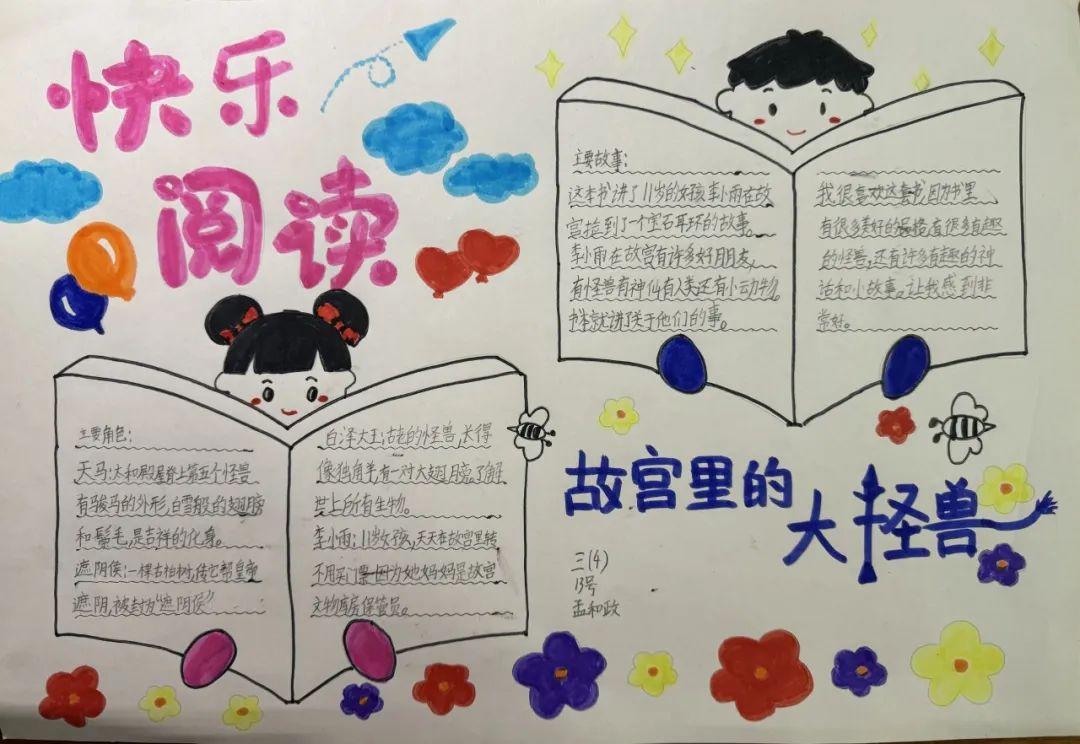 快乐
阅读
主要故事：
这本书讲了11岁的女孩李小雨在故
宫捡到了一个宝石耳环的故事。
李小雨在故宫有许多好朋友，
有怪兽有神仙有人类还有小动物。
书本就讲了关于他们的事。
我很喜欢这套书，因为书里
有很多美好的品格，有很多有趣
的怪兽，还有许多有趣的神
话和小故事。让我感到非
常好。
主要角色：
天马：太和殿屋脊上第五个怪兽
有骏马的外形，白雪般的翅膀
和鬃毛，是吉祥的化身。
遮阴侯：一棵古柏树，传它帮皇帝
遮阴，被封为“遮阴侯”
白泽大王：古老的怪兽，长得
像独角羊有一对大翅膀，了解
世上所有生物。
李小雨：11岁女孩，天天在故宫里转
不用买门票因为她妈妈是故宫
文物库房保管员。
故宫里的
大怪兽
三(4)
13号
孟和政